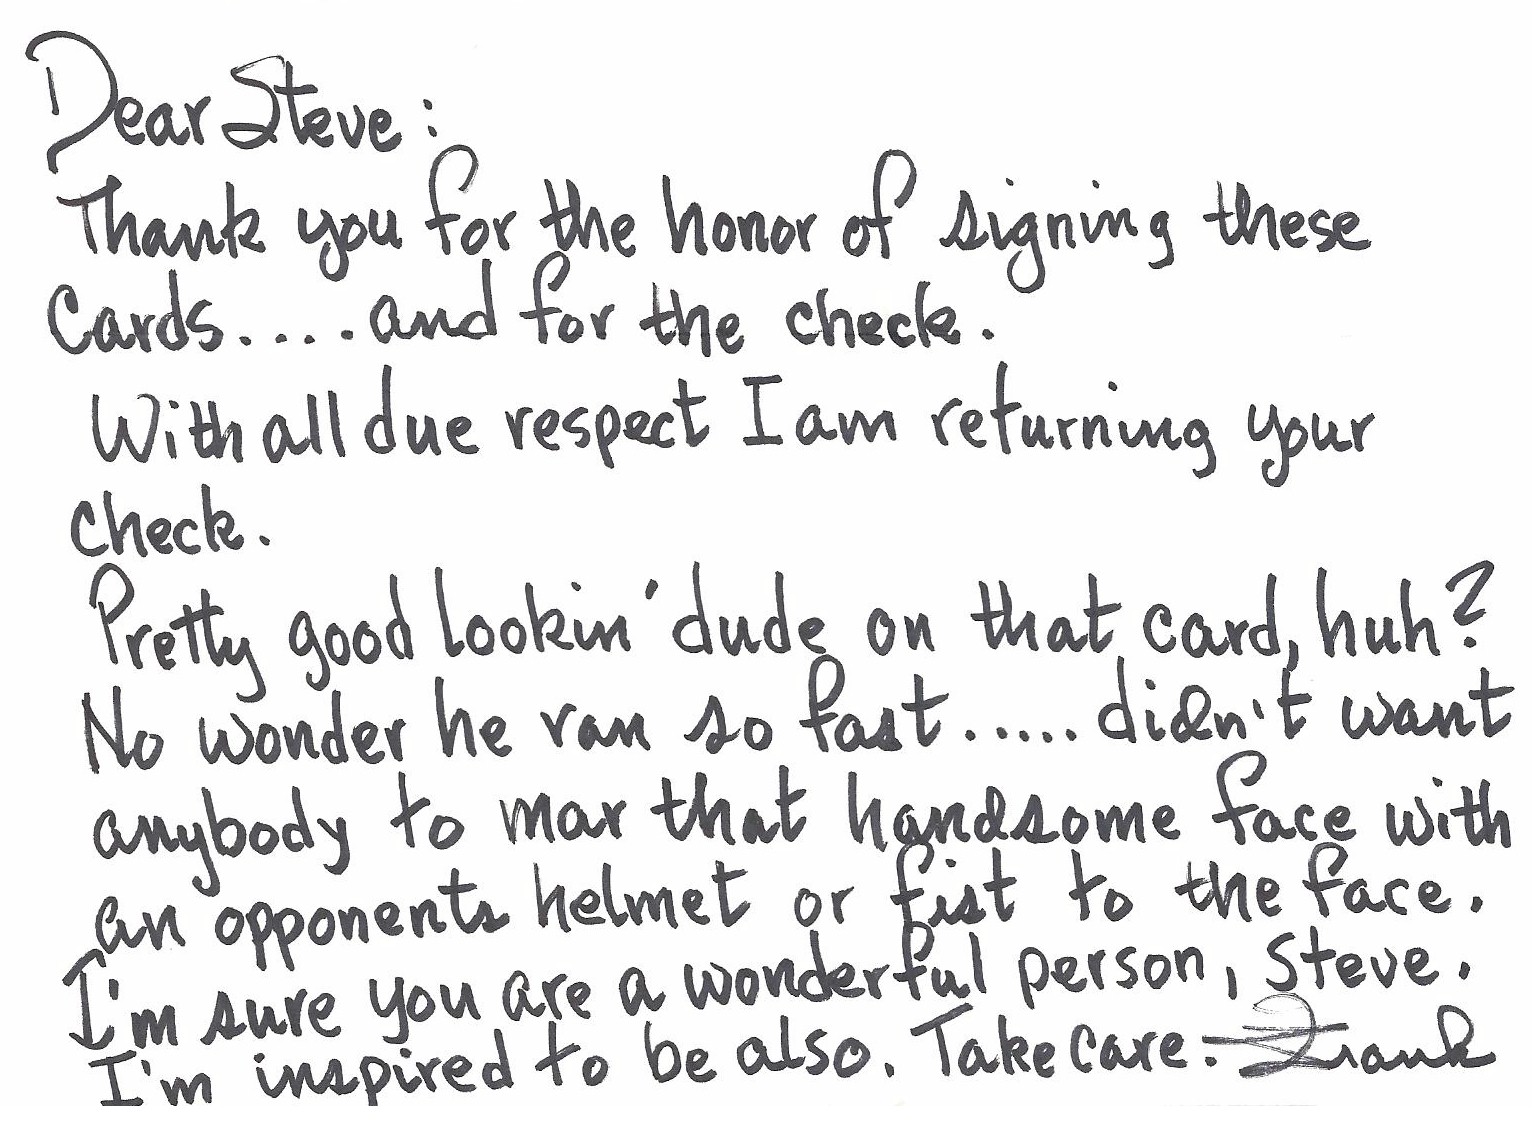 Dear Steve:
Thank you for the honor of signing these
Cards.... and for the check.
With all due respect I am returning your
check.
Pretty good lookin' dude on that card, huh?
No wonder he ran so fast..... didn't want
anybody to mar that handsome face with
an opponents helmet or fist to the face.
I'm sure you are a wonderful person, Steve.
I'm inspired to be also. Take care. Frank